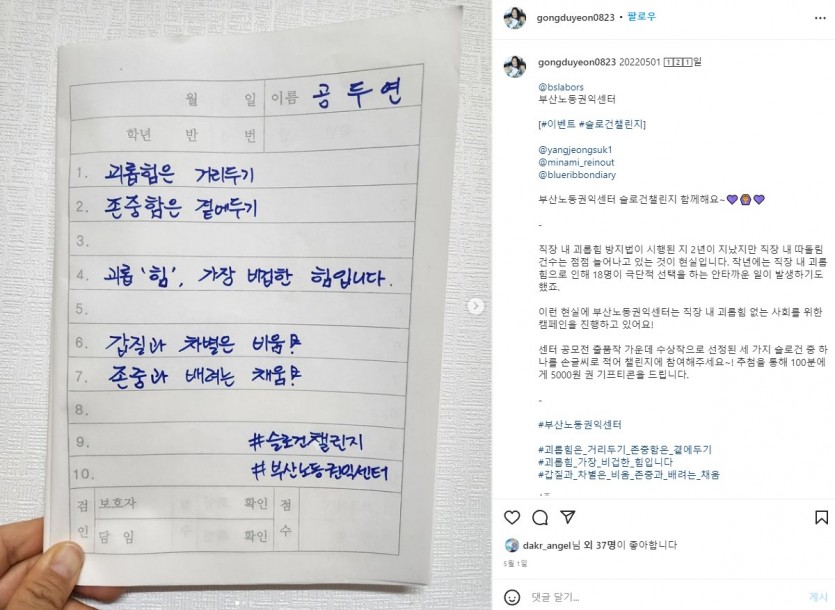 월 일 이름 공두연
학년 반 번
1. 괴롭힘은 거리두기
2. 존중함은 곁에두기
3.
4. 괴롭 '힘', 가장 비겁한 힘입니다.
5.
6. 갑질과 차별은 비움!
7. 존중과 배려는 채움!
8.
9. #슬로건챌린지
10. #부산노동권익센터
검인 보호자 확인 점수
담임 확인
gongduyeon0823 • 팔로우
gongduyeon0823 20220501 1️⃣2️⃣1️⃣일
@bslabors
부산노동권익센터
[#이벤트 #슬로건챌린지]
@yangjeongsuk1
@minami_reinout
@blueribbondiary
부산노동권익센터 슬로건챌린지 함께해요~💜🙆💜
-
직장 내 괴롭힘 방지법이 시행된 지 2년이 지났지만 직장 내 따돌림
건수는 점점 늘어나고 있는 것이 현실입니다. 작년에는 직장 내 괴롭
힘으로 인해 18명이 극단적 선택을 하는 안타까운 일이 발생하기도
했죠.
이런 현실에 부산노동권익센터는 직장 내 괴롭힘 없는 사회를 위한
캠페인을 진행하고 있어요!
센터 공모전 출품작 가운데 수상작으로 선정된 세 가지 슬로건 중 하
나를 손글씨로 적어 챌린지에 참여해주세요~! 추첨을 통해 100분에
게 5000원 권 기프티콘을 드립니다.
-
#부산노동권익센터
#괴롭힘은_거리두기_존중함은_곁에두기
#괴롭힘_가장_비겁한_힘입니다
#갑질과_차별은_비움_존중과_배려는_채움
dakr_angel님 외 37명이 좋아합니다
5월 1일
댓글 달기...
게시